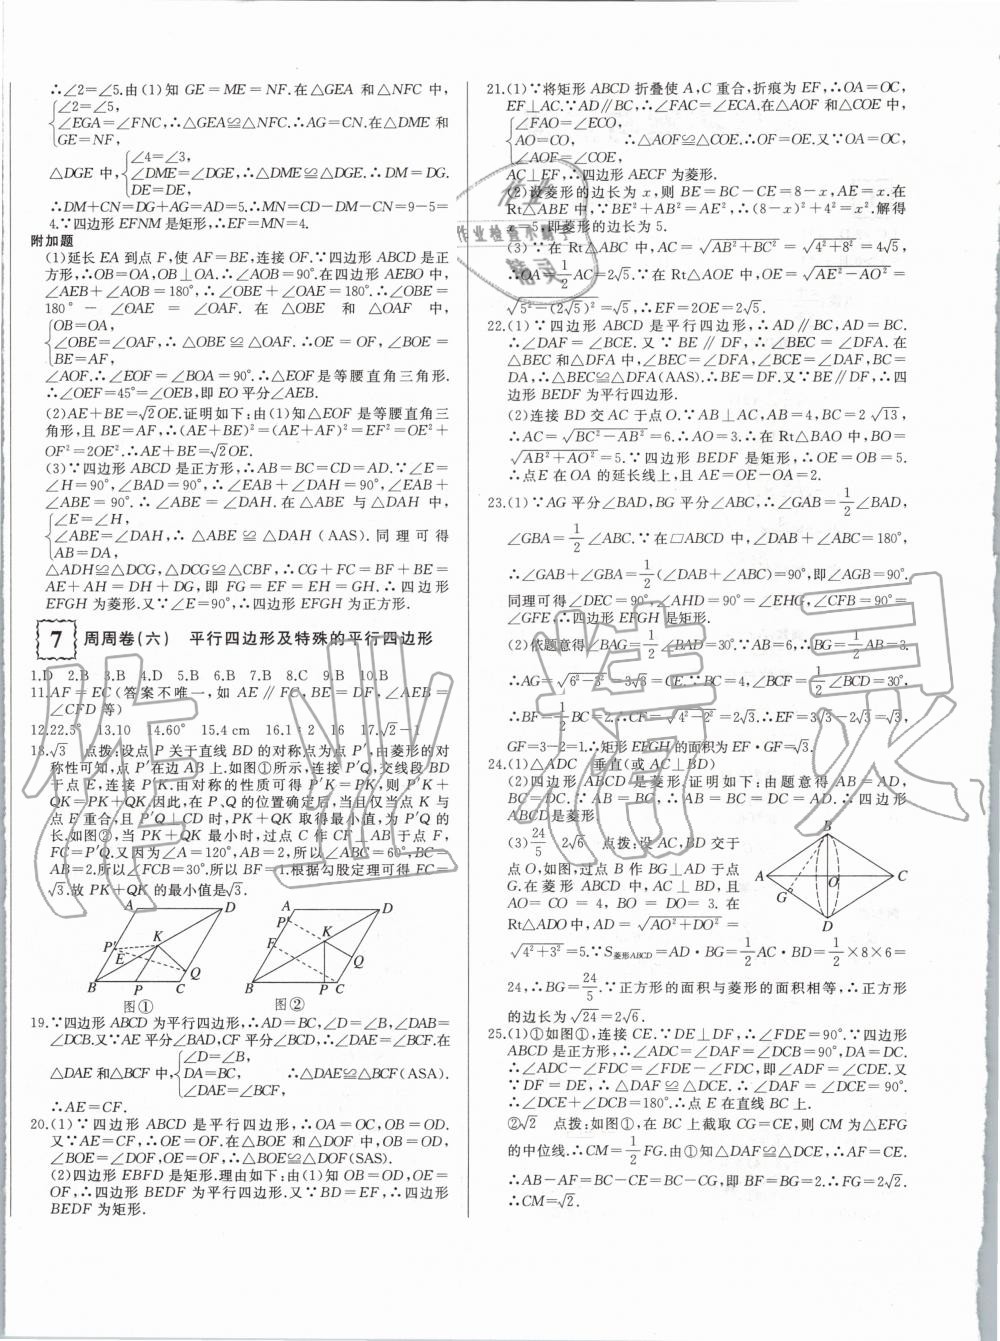 ∴∠2=∠5.由(1)知 GE=ME=NF.在△GEA 和△NFC 中,
{∠2=∠5,
∠EGA=∠FNC,∴△GEA≌△NFC.∴AG=CN.在△DME 和
GE=NF,
△DGE 中,{∠4=∠3,
∠DME=∠DGE,∴△DME≌△DGE.∴DM=DG.
DE=DE,
∴DM+CN=DG+AG=AD=5.∴MN=CD-DM-CN=9-5=
4.∵四边形 EFNM 是矩形,∴EF=MN=4.
附加题
(1)延长 EA 到点 F,使 AF=BE,连接 OF.∵四边形 ABCD 是正
方形,∴OB=OA,OB⊥OA.∴∠AOB=90°.在四边形 AEBO 中,
∠AEB+∠AOB=180°,∴∠OBE+∠OAE=180°.∴∠OBE=
180°-∠OAE=∠OAF.在△OBE 和△OAF 中,
{OB=OA,
∠OBE=∠OAF,∴△OBE≌△OAF.∴OE=OF,∠BOE=
BE=AF,
∠AOF.∴∠EOF=∠BOA=90°.∴△EOF是等腰直角三角形.
∴∠OEF=45°=∠OEB,即 EO 平分∠AEB.
(2)AE+BE=√2OE.证明如下:由(1)知△EOF 是等腰直角三
角形,且 BE=AF,∴(AE+BE)²=(AE+AF)²=EF²=OE²+
OF²=2OE².∴AE+BE=√2OE.
(3)∵四边形 ABCD 是正方形,∴AB=BC=CD=AD.∵∠E=
∠H=90°,∠BAD=90°,∴∠EAB+∠DAH=90°,∠EAB+
∠ABE=90°.∴∠ABE=∠DAH.在△ABE 与△DAH 中,
{∠E=∠H,
∠ABE=∠DAH,∴△ABE≌△DAH (AAS).同理可得
AB=DA,
△ADH≌△DCG,△DCG≌△CBF,∴CG+FC=BF+BE=
AE+AH=DH+DG,即 FG=EF=EH=GH.∴四边形
EFGH 为菱形.又∵∠E=90°,∴四边形 EFGH 为正方形.
7 周周卷(六) 平行四边形及特殊的平行四边形
1.D 2.B 3.B 4.D 5.B 6.B 7.B 8.C 9.B 10.B
11.AF=EC(答案不唯一,如 AE∥FC,BE=DF,∠AEB=
∠CFD 等)
12.22.5° 13.10 14.60° 15.4 cm 16.1∶2 16 17.√2-1
18.√3 点拨:设点 P 关于直线 BD 的对称点为点 P′,由菱形的对
称性可知,点 P′在边 AB 上.如图①所示,连接 P′Q,交线段 BD
于点 E,连接 P′K.由对称的性质可得 P′K=PK,则 P′K+
QK=PK+QK.因此,在 P、Q 的位置确定后,当且仅当点 K 与
点 E 重合,且 P′Q⊥CD 时,PK+QK 取得最小值,为 P′Q 的
长.如图②,当 PK+QK 最小时,过点 C 作 CF⊥AB 于点 F,
FC=P′Q.又因为∠A=120°,AB=2,所以∠ABC=60°,BC=
AB=2.所以∠FCB=30°.所以 BF=1.根据勾股定理可得 FC=
√3.故 PK+QK 的最小值是√3.
A D P′ K E Q B P C
图①
A D P′ K F Q B P C
图②
19.∵四边形 ABCD 为平行四边形,∴AD=BC,∠D=∠B,∠DAB=
∠DCB.又∵AE 平分∠BAD,CF 平分∠BCD,∴∠DAE=∠BCF.在
△DAE 和△BCF 中,{∠D=∠B,
DA=BC, ∴△DAE≌△BCF(ASA).
∠DAE=∠BCF,
∴AE=CF.
20.(1)∵四边形 ABCD 是平行四边形,∴OA=OC,OB=OD.
又∵AE=CF,∴OE=OF.在△BOE 和△DOF 中,OB=OD,
∠BOE=∠DOF,OE=OF,∴△BOE≌△DOF(SAS).
(2)四边形 EBFD 是矩形.理由如下:由(1)知 OB=OD,OE=
OF,∴四边形 BEDF 为平行四边形.又∵BD=EF,∴四边形
BEDF 为矩形.
21.(1)∵将矩形 ABCD 折叠使 A,C 重合,折痕为 EF,∴OA=OC,
EF⊥AC.∵AD∥BC,∴∠FAC=∠ECA.在△AOF 和△COE 中,
{∠FAO=∠ECO,
AO=CO, ∴△AOF≌△COE.∴OF=OE.又∵OA=OC,
∠AOF=∠COE,
AC⊥EF,∴四边形 AECF 为菱形.
(2)设菱形的边长为 x,则 BE=BC-CE=8-x,AE=x.在
Rt△ABE 中,∵BE²+AB²=AE²,∴(8-x)²+4²=x².解得
x=5,即菱形的边长为 5.
(3)∵在 Rt△ABC 中,AC=√AB²+BC²=√4²+8²=4√5,
∴OA=1/2AC=2√5.∵在 Rt△AOE 中,OE=√AE²-AO²=
√5²-(2√5)²=√5,∴EF=2OE=2√5.
22.(1)∵四边形 ABCD 是平行四边形,∴AD∥BC,AD=BC.
∴∠DAF=∠BCE.又∵BE∥DF,∴∠BEC=∠DFA.在
△BEC 和△DFA 中,∠BEC=∠DFA,∠BCE=∠DAF,BC=
DA,∴△BEC≌△DFA(AAS).∴BE=DF.又∵BE∥DF,∴四
边形 BEDF 为平行四边形.
(2)连接 BD 交 AC 于点 O.∵AB⊥AC,AB=4,BC=2√13,
∴AC=√BC²-AB²=6.∴AO=3.∴在 Rt△BAO 中,BO=
√AB²+AO²=5.∵四边形 BEDF 是矩形,∴OE=OB=5.
∴点 E 在 OA 的延长线上,且 AE=OE-OA=2.
23.(1)∵AG 平分∠BAD,BG 平分∠ABC,∴∠GAB=1/2∠BAD,
∠GBA=1/2∠ABC.∵在▱ABCD 中,∠DAB+∠ABC=180°,
∴∠GAB+∠GBA=1/2(∠DAB+∠ABC)=90°,即∠AGB=90°.
同理可得∠DEC=90°,∠AHD=90°=∠EHG,∠CFB=90°=
∠GFE,∴四边形 EFGH 是矩形.
(2)依题意得∠BAG=1/2∠BAD=30°.∵AB=6,∴BG=1/2AB=3.
∴AG=√6²-3²=3√3=CE.∵BC=4,∠BCF=1/2∠BCD=30°,
∴BF=1/2BC=2.∴CF=√4²-2²=2√3.∴EF=3√3-2√3=√3,
GF=3-2=1.∴矩形 EFGH 的面积为 EF·GF=√3.
24.(1)△ADC 垂直(或 AC⊥BD)
(2)四边形 ABCD 是菱形.证明如下:由题意得 AB=AD,
BC=DC.∵AB=BC,∴AB=BC=DC=AD.∴四边形
ABCD 是菱形.
(3)24/5 2√6 点拨:设 AC,BD 交于
点 O,如图,过点 B 作 BG⊥AD 于点
G.在菱形 ABCD 中,AC⊥BD,且
AO=CO=4,BO=DO=3.在
Rt△ADO 中,AD=√AO²+DO²=
√4²+3²=5.∵S菱形ABCD=AD·BG=1/2AC·BD=1/2×8×6=
B A O C G D
24,∴BG=24/5.∵正方形的面积与菱形的面积相等,∴正方形
的边长为√24=2√6.
25.(1)①如图①,连接 CE.∵DE⊥DF,∴∠FDE=90°.∵四边形
ABCD 是正方形,∴∠ADC=∠DAF=∠DCB=90°,DA=DC.
∴∠ADC-∠FDC=∠FDE-∠FDC,即∠ADF=∠CDE.又∵
DF=DE,∴△DAF≌△DCE.∴∠DAF=∠DCE=90°.
∴∠DCE+∠DCB=180°.∴点 E 在直线 BC 上.
②√2 点拨:如图①,在 BC 上截取 CG=CE,则 CM 为△EFG
的中位线.∴CM=1/2FG.由①知△DAF≌△DCE,∴AF=CE.
∴AB-AF=BC-CE=BC-CG,即 BF=BG=2.∴FG=2√2.
∴CM=√2.
作业检查小助手
作业
精灵
作业精灵